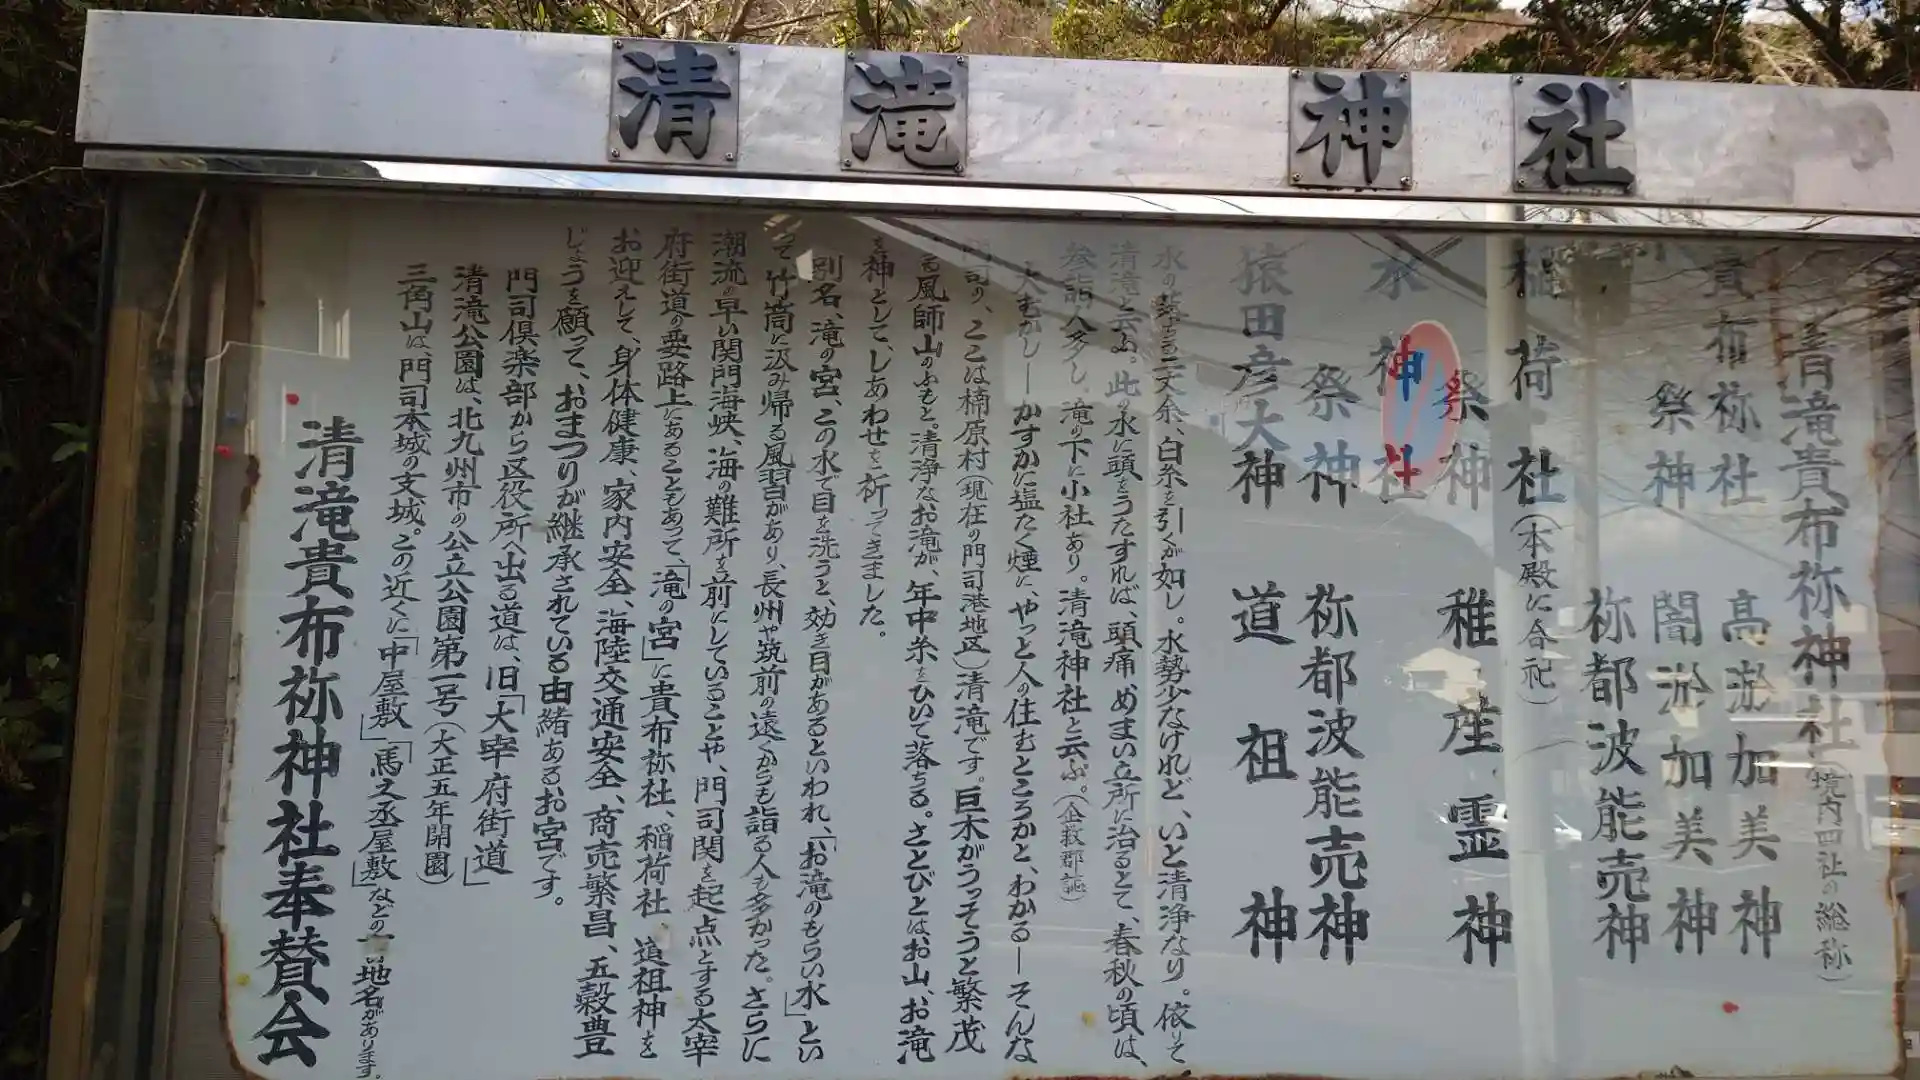 清滝神社
清滝貴布祢神社(境内四社の総称)
貴布祢社
祭神 高淤加美神
闇淤加美神
祢都波能売神
稲荷社(本殿に合祀)
祭神 稚産霊神
水神社
祭神 祢都波能売神
猿田彦大神 道祖神
水の落る二丈余、白糸を引くが如し。水勢少なけれど、いと清浄なり。依りて
清滝と云ふ。此の水に頭をうたすれば、頭痛、めまい立所に治るとて、春秋の頃は、
参詣人多し。滝の下に小社あり。清滝神社と云ふ。(企救郡誌)
大むかし―かすかに塩たく煙に、やっと人の住むところかと、わかる―そんな
門司の、ここは楠原村(現在の門司港地区)清滝です。巨木がうっそうと繁茂
する風師山のふもと。清浄なお滝が、年中糸をひいて落ちる。さとびとは、お山、お滝
を神として、しあわせを祈ってきました。
別名、滝の宮、この水で目を洗うと、効き目があるといわれ、「お滝のもらい水」とい
って竹筒に汲み帰る風習があり、長州や筑前の遠くからも詣る人も多かった。さらに
潮流の早い関門海峡、海の難所を前にしていることや、門司関を起点とする太宰
府街道の要路上にあることもあって、「滝の宮」に貴布祢社、稲荷社、道祖神を
お迎えして、身体健康、家内安全、海陸交通安全、商売繁昌、五穀豊
じょうを願って、おまつりが継承されている由緒あるお宮です。
門司倶楽部から区役所へ出る道は、旧「大宰府街道」
清滝公園は、北九州市の公立公園第一号(大正五年開園)
三角山は、門司本城の支城。この近くに「中屋敷」「馬之丞屋敷」などの地名があります。
清滝貴布祢神社奉賛会